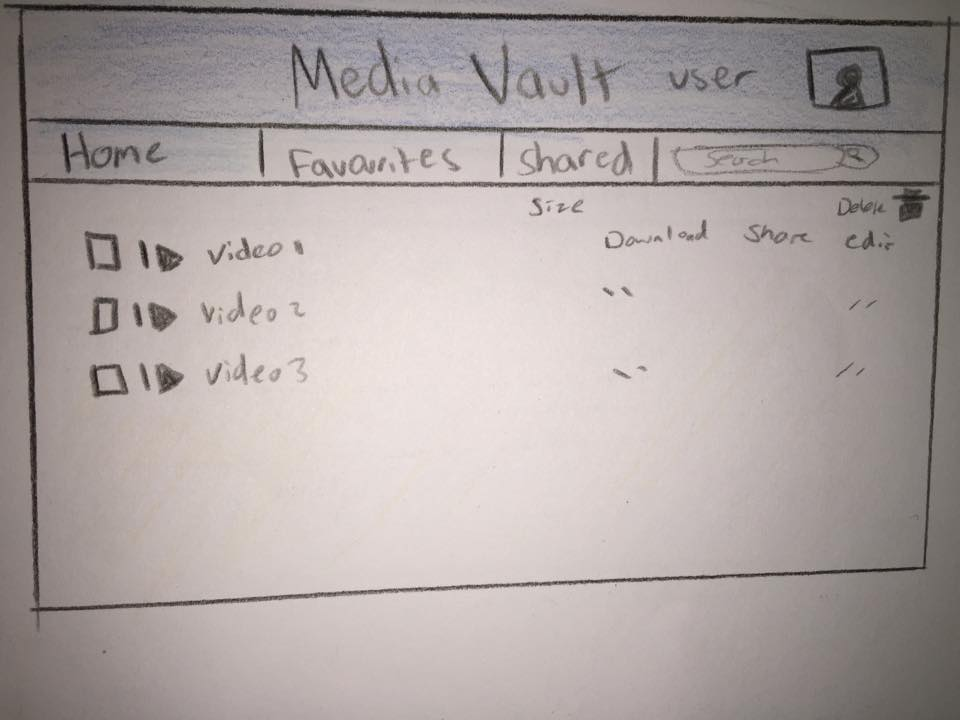 Media Vault user
Home Favourites shared Search
Size Delete
video 1 Download Share edit
video 2 " "
video 3 " "